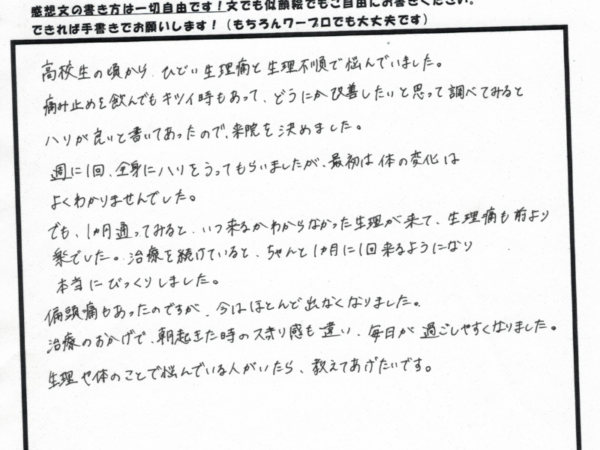 感想文の書き方は一切自由です！文でも似顔絵でもご自由にお書きください。
できれば手書きでお願いします！（もちろんワープロでも大丈夫です）
高校生の頃から、ひどい生理痛と生理不順で悩んでいました。
痛み止めを飲んでもキツイ時もあって、どうにか改善したいと思って調べてみると
ハリが良いと書いてあったので、来院を決めました。
週に1回、全身にハリをうってもらいましたが、最初は体の変化は
よくわかりませんでした。
でも、1カ月通ってみると、いつ来るかわからなかった生理が来て、生理痛も前より
楽でした。治療を続けていると、ちゃんと1カ月に1回来るようになり
本当にびっくりしました。
偏頭痛もあったのですが、今はほとんど出なくなりました。
治療のおかげで、朝起きた時のスッキリ感も違い、毎日が過ごしやすくなりました。
生理や体のことで悩んでいる人がいたら、教えてあげたいです。